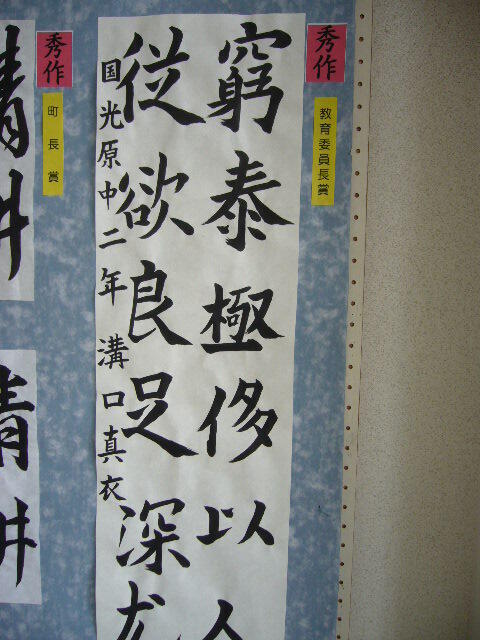 秀作
教育委員長賞
窮泰極侈以人
従欲良足深尤
国光原中二年 溝口真衣
秀作
町長賞